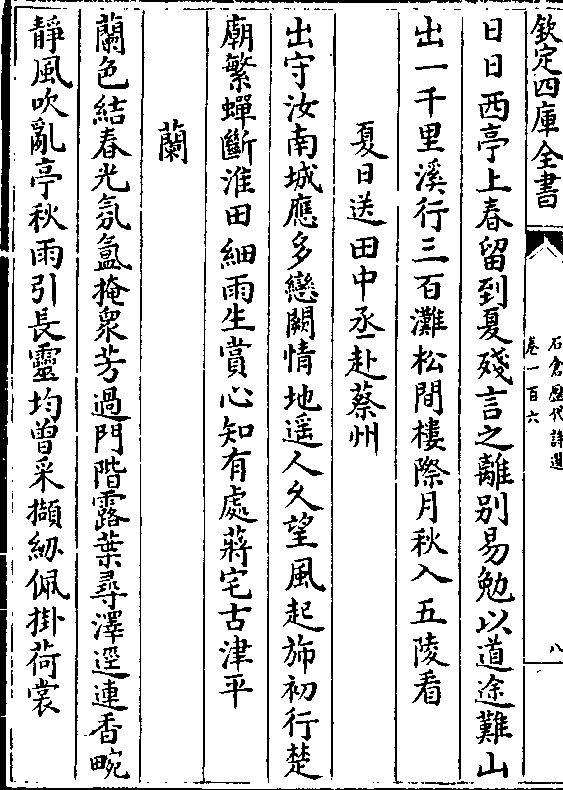 欽定四庫全書
石倉歷代詩選
卷一百六
八
日日西亭上春留到夏殘言之離别易勉以道途難山
出一千里溪行三百灘松間樓際月秋入五陵看
夏日送田中丞赴蔡州
出守汝南城應多戀闕情地遥人久望風起斾初行楚
廟繁蟬斷淮田細雨生賞心知有處蔣宅古津平
蘭
蘭色結春光氛氲掩衆芳過門階露葉尋澤逕連香畹
靜風吹亂亭秋雨引長靈均曽采擷紉佩掛荷裳